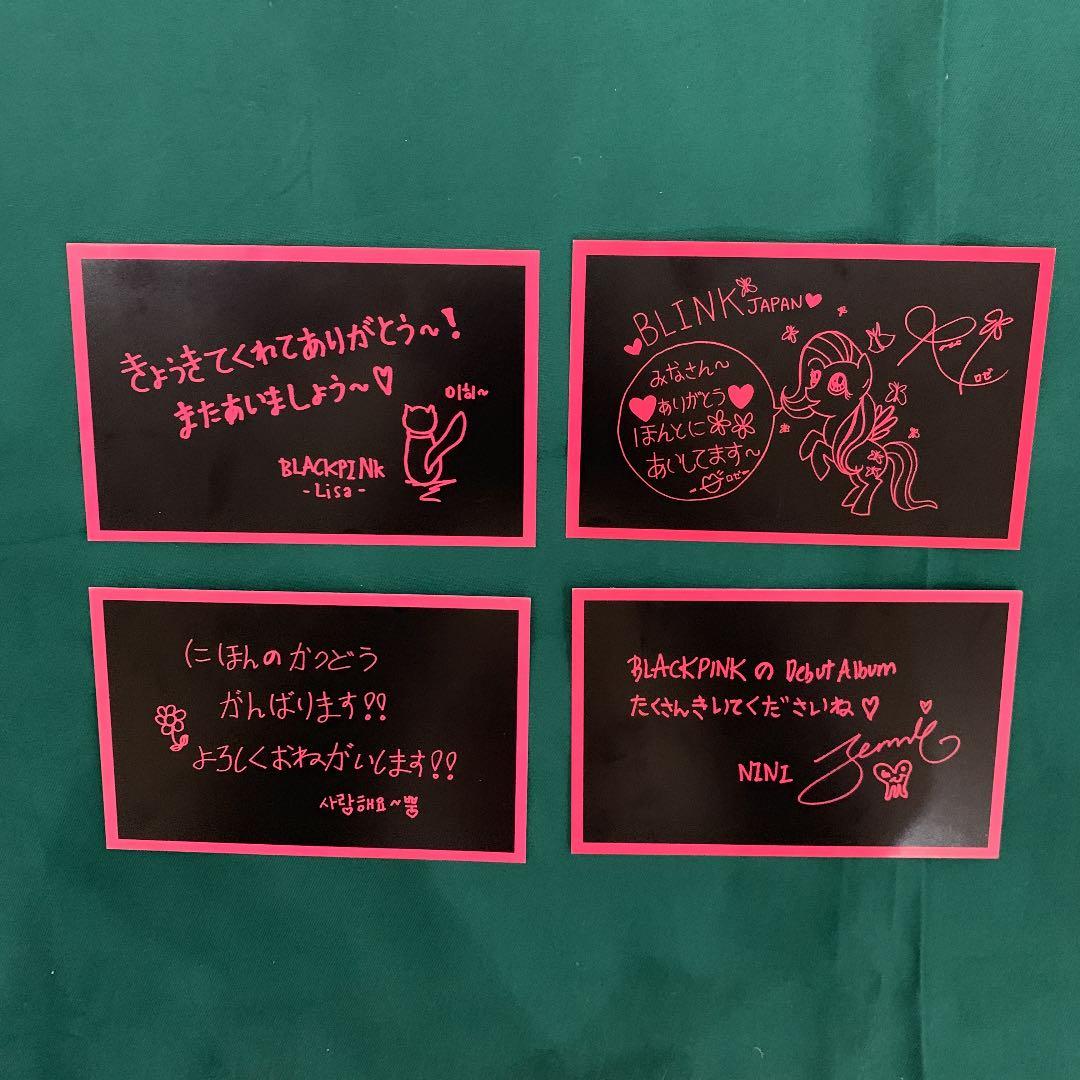 きょうきてくれてありがとう〜!
またあいましょう〜♡
이히~
BLACKPINK
-Lisa-
BLINK JAPAN
みなさん〜
ありがとう
ほんとに
あいしてます〜
ロゼ
Rosé
ロゼ
にほんのかつどう
がんばります!!
よろしくおねがいします!!
사랑해요~쁑
BLACKPINKの Debut Album
たくさんきいてくださいね♡
Jennie
NINI